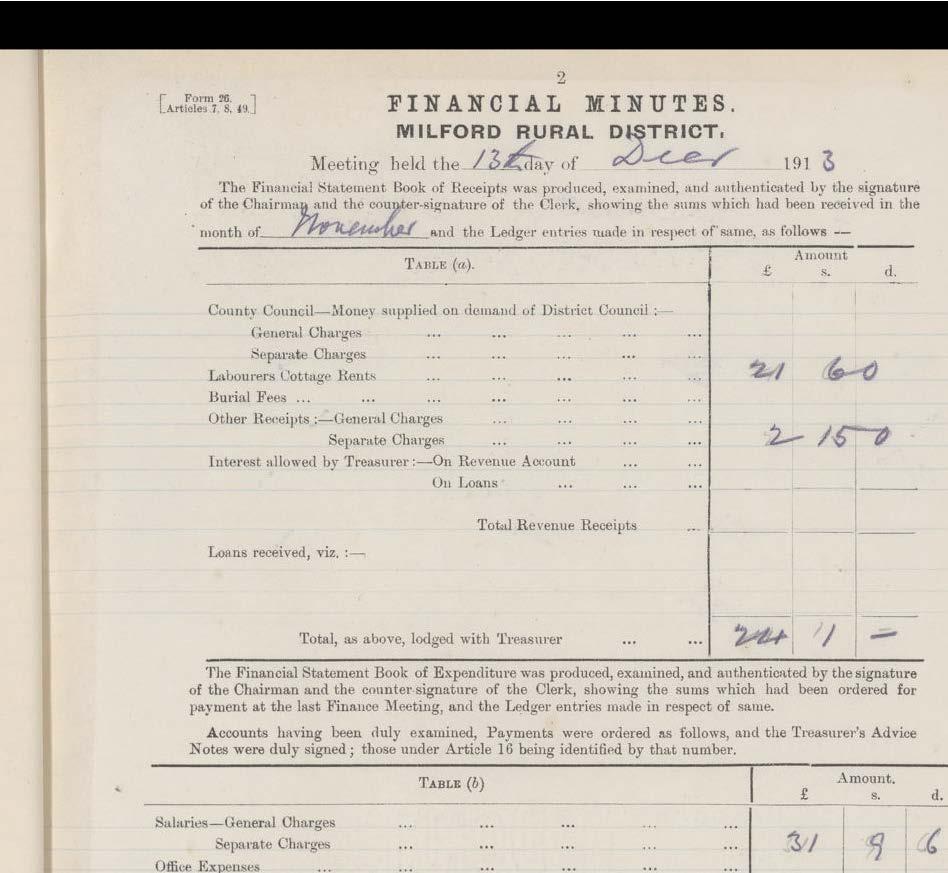 2
[Form 26. Articles 7, 8, 49.]
FINANCIAL MINUTES.
MILFORD RURAL DISTRICT.
Meeting held the 13th day of Decr 1913
The Financial Statement Book of Receipts was produced, examined, and authenticated by the signature
of the Chairman and the counter-signature of the Clerk, showing the sums which had been received in the
month of November and the Ledger entries made in respect of same, as follows —
TABLE (a). Amount
£ s. d.
County Council—Money supplied on demand of District Council :—
General Charges ... ... ... ... ...
Separate Charges ... ... ... ... ...
Labourers Cottage Rents ... ... ... ... ... 21 6 0
Burial Fees ... ... ... ... ... ... ...
Other Receipts :—General Charges ... ... ... ...
Separate Charges ... ... ... ... 2 15 0
Interest allowed by Treasurer :—On Revenue Account ... ...
On Loans ... ... ...
Total Revenue Receipts ...
Loans received, viz. :—
Total, as above, lodged with Treasurer ... ... 24 1 =
The Financial Statement Book of Expenditure was produced, examined, and authenticated by the signature
of the Chairman and the counter-signature of the Clerk, showing the sums which had been ordered for
payment at the last Finance Meeting, and the Ledger entries made in respect of same.
Accounts having been duly examined, Payments were ordered as follows, and the Treasurer's Advice
Notes were duly signed ; those under Article 16 being identified by that number.
TABLE (b) Amount.
£ s. d.
Salaries—General Charges ... ... ... ... ...
Separate Charges ... ... ... ... ... 31 9 6
Office Expenses ... ... ... ... ... ...